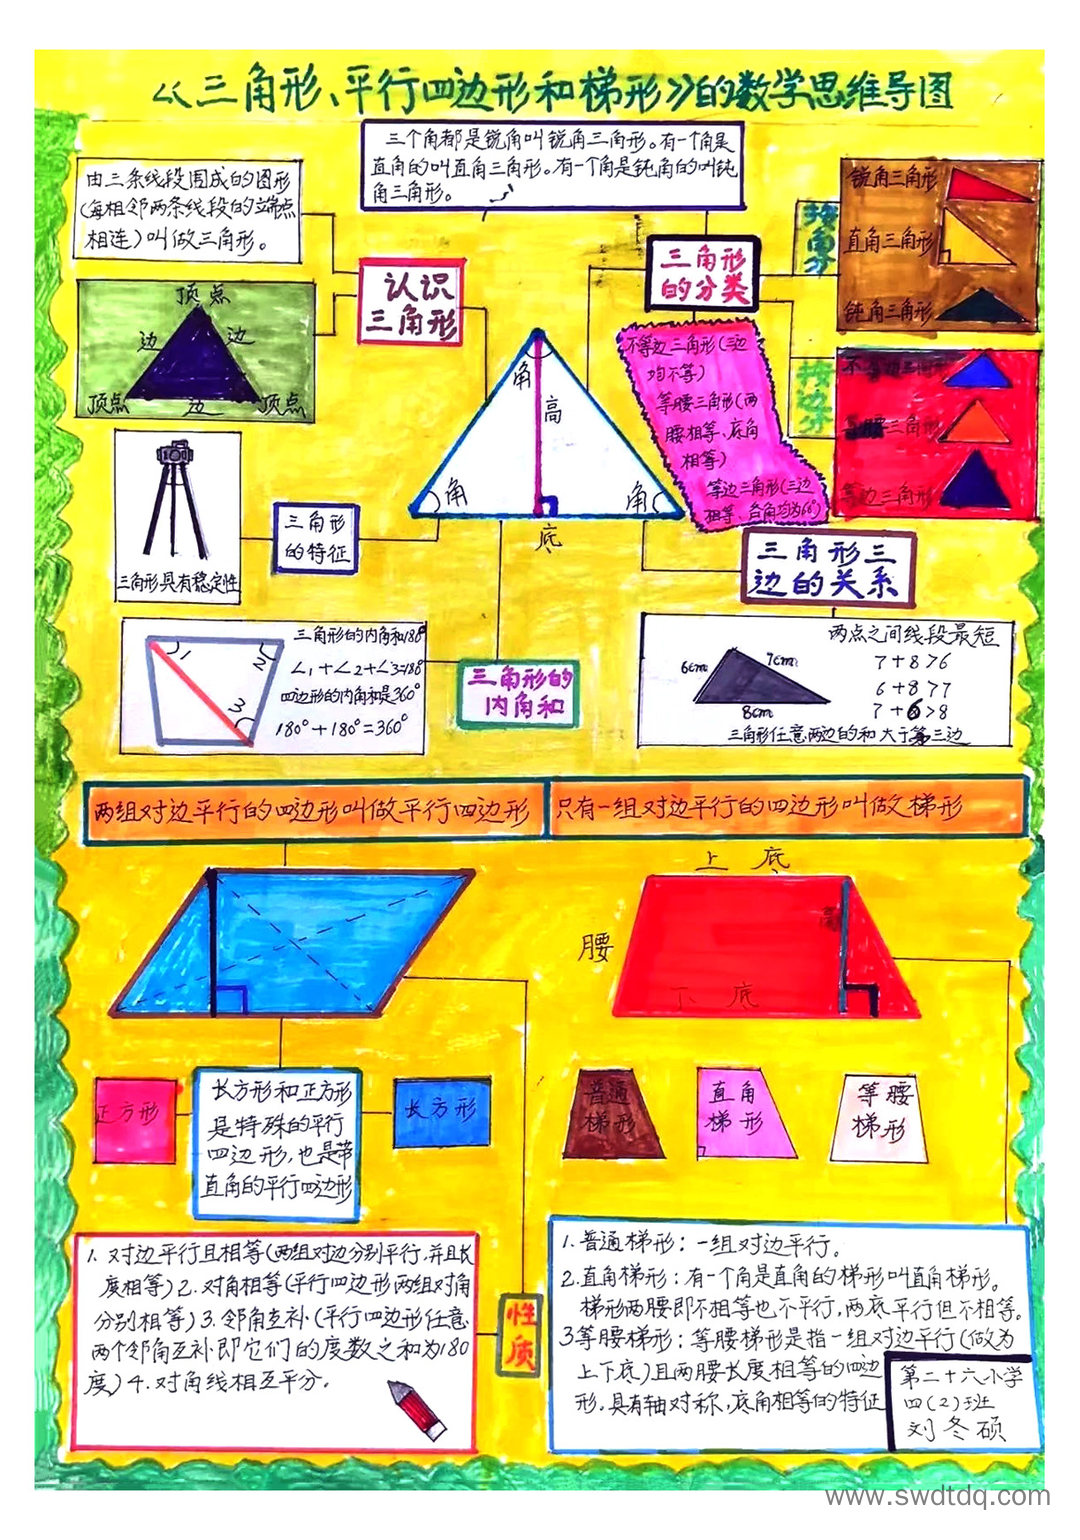 《三角形、平行四边形和梯形》的数学思维导图
三个角都是锐角叫锐角三角形。有一个角是
直角的叫直角三角形。有一个角是钝角的叫钝
角三角形。
由三条线段围成的图形
(每相邻两条线段的端点
相连)叫做三角形。
认识
三角形
顶点
边
边
顶点
边
顶点
三角形
的分类
按角分
锐角三角形
直角三角形
钝角三角形
不等边三角形(三边
均不等)
等腰三角形(两
腰相等、底角
相等)
等边三角形(三边
相等、各角均为60°)
按边分
不等边三角形
等腰三角形
等边三角形
角
高
角
角
底
三角形具有稳定性
三角形
的特征
三角形三
边的关系
1
2
3
三角形的内角和180°
∠1+∠2+∠3=180°
四边形的内角和是360°
180°+180°=360°
三角形的
内角和
两点之间线段最短
6cm
7cm
8cm
7+8>6
6+8>7
7+6>8
三角形任意两边的和大于第三边
两组对边平行的四边形叫做平行四边形
只有一组对边平行的四边形叫做梯形
上底
腰
高
下底
正方形
长方形和正方形
是特殊的平行
四边形,也是带
直角的平行四边形
长方形
普通
梯形
直角
梯形
等腰
梯形
1. 对边平行且相等(两组对边分别平行,并且长
度相等)2. 对角相等(平行四边形两组对角
分别相等)3. 邻角互补(平行四边形任意
两个邻角互补即它们的度数之和为180
度)4. 对角线相互平分.
性质
1. 普通梯形:一组对边平行。
2. 直角梯形:有一个角是直角的梯形叫直角梯形。
梯形两腰即不相等也不平行,两底平行但不相等。
3等腰梯形:等腰梯形是指一组对边平行(做为
上下底)且两腰长度相等的四边
形,具有轴对称,底角相等的特征
第二十六小学
四(2)班
刘冬硕
www.swdtdq.com